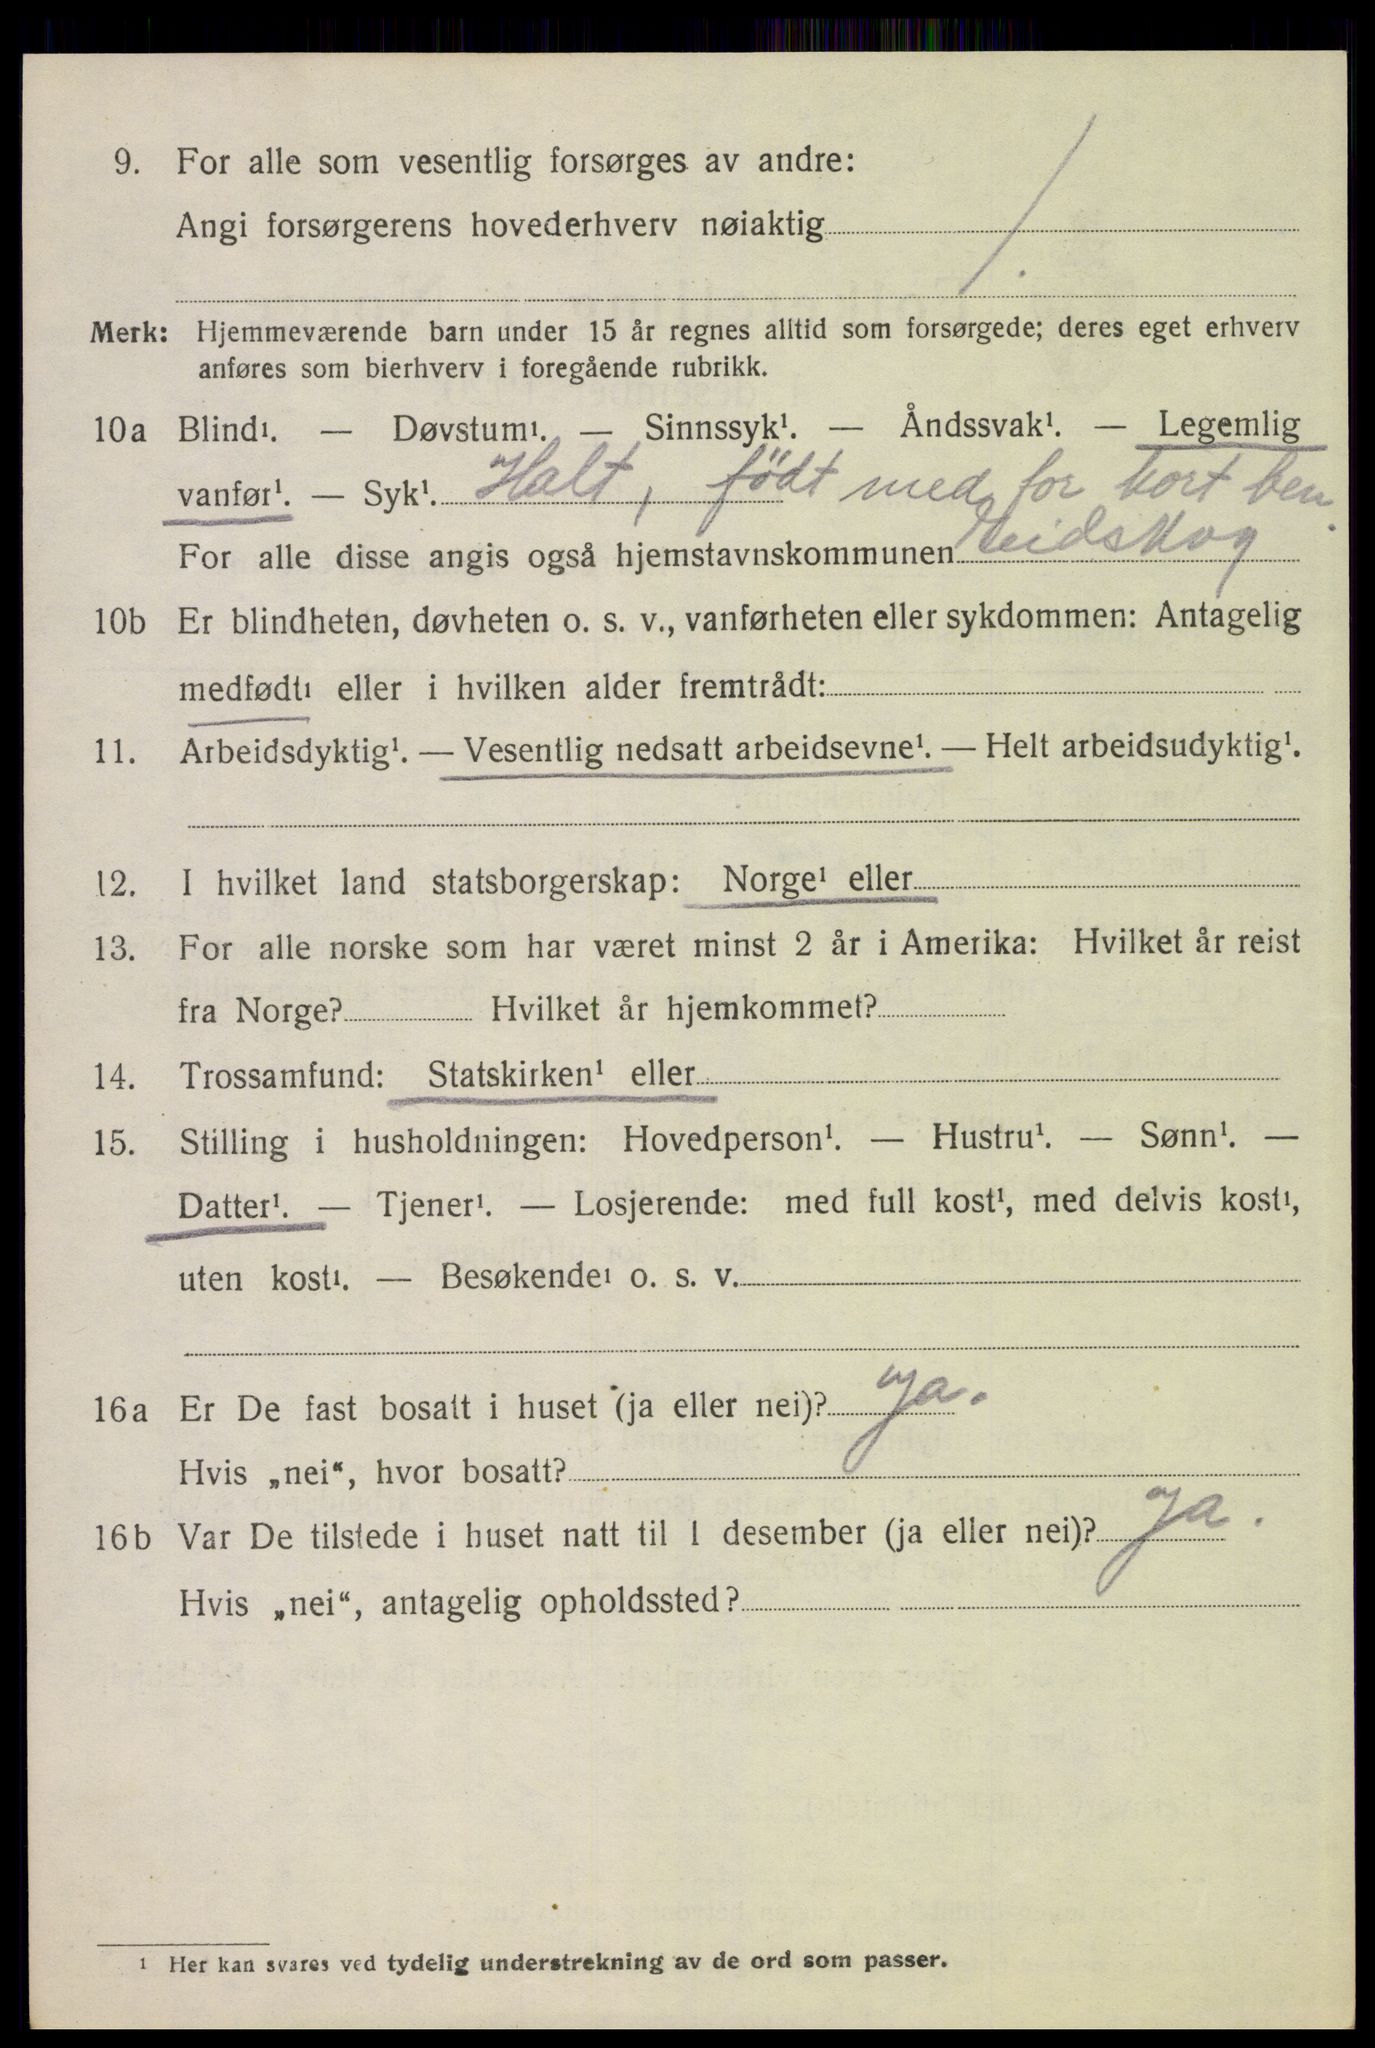 9. For alle som vesentlig forsørges av andre:
Angi forsørgerens hovederhverv nøiaktig /.
Merk: Hjemmeværende barn under 15 år regnes alltid som forsørgede; deres eget erhverv
anføres som bierhverv i foregående rubrikk.
10a Blind¹. — Døvstum¹. — Sinnssyk¹. — Åndssvak¹. — Legemlig
vanfør¹. — Syk¹. Halt, född med for kort ben.
For alle disse angis også hjemstavnskommunen Eidskog
10b Er blindheten, døvheten o. s. v., vanførheten eller sykdommen: Antagelig
medfødt¹ eller i hvilken alder fremtrådt:
11. Arbeidsdyktig¹. — Vesentlig nedsatt arbeidsevne¹. — Helt arbeidsudyktig¹.
12. I hvilket land statsborgerskap: Norge¹ eller
13. For alle norske som har været minst 2 år i Amerika: Hvilket år reist
fra Norge? Hvilket år hjemkommet?
14. Trossamfund: Statskirken¹ eller
15. Stilling i husholdningen: Hovedperson¹. — Hustru¹. — Sønn¹. —
Datter¹. — Tjener¹. — Losjerende: med full kost¹, med delvis kost¹,
uten kost¹. — Besøkende¹ o. s. v.
16a Er De fast bosatt i huset (ja eller nei)? ja.
Hvis „nei“, hvor bosatt?
16b Var De tilstede i huset natt til 1 desember (ja eller nei)? ja.
Hvis „nei“, antagelig opholdssted?
¹ Her kan svares ved tydelig understrekning av de ord som passer.